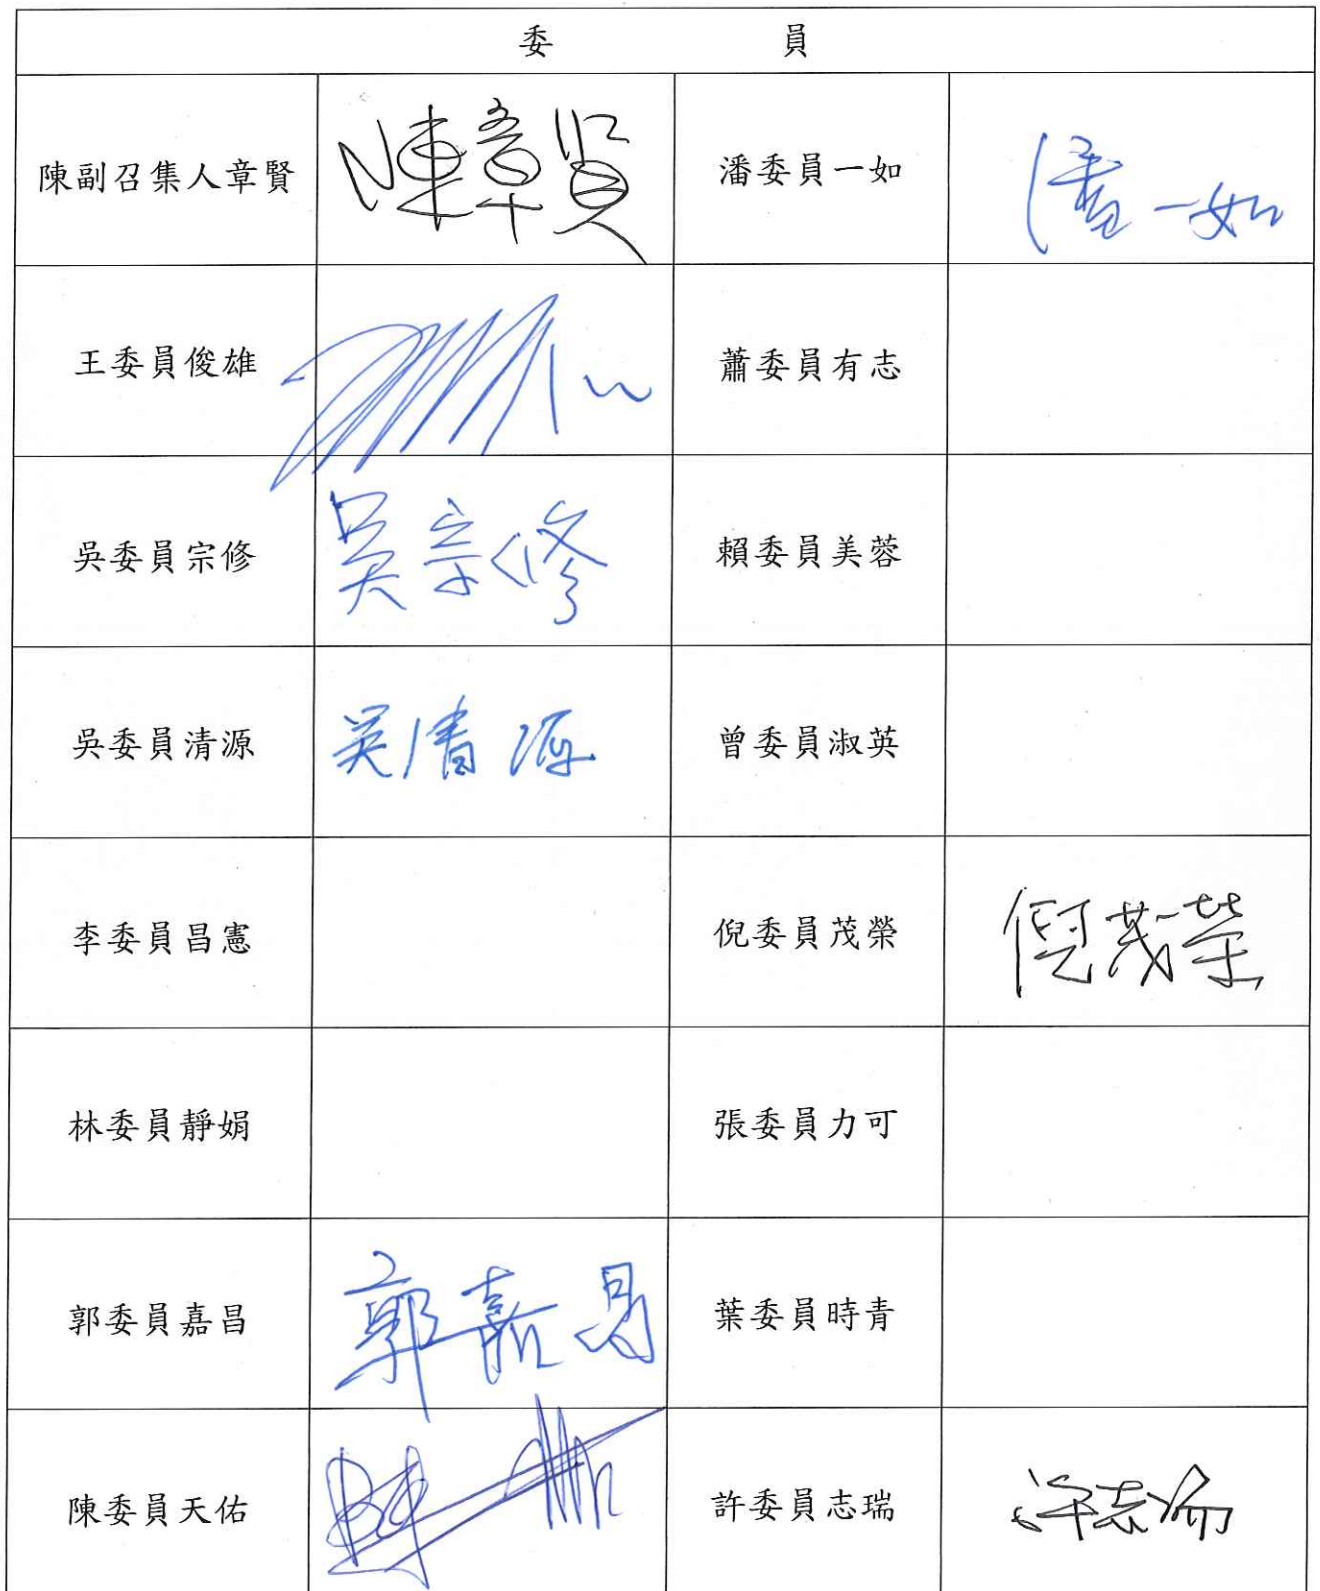 委 員
陳副召集人章賢 陳章賢 潘委員一如 潘一如
王委員俊雄 蕭委員有志
吳委員宗修 吳宗修 賴委員美蓉
吳委員清源 吳清源 曾委員淑英
李委員昌憲 倪委員茂榮 倪茂榮
林委員靜娟 張委員力可
郭委員嘉昌 郭嘉昌 葉委員時青
陳委員天佑 陳 許委員志瑞 許志瑞